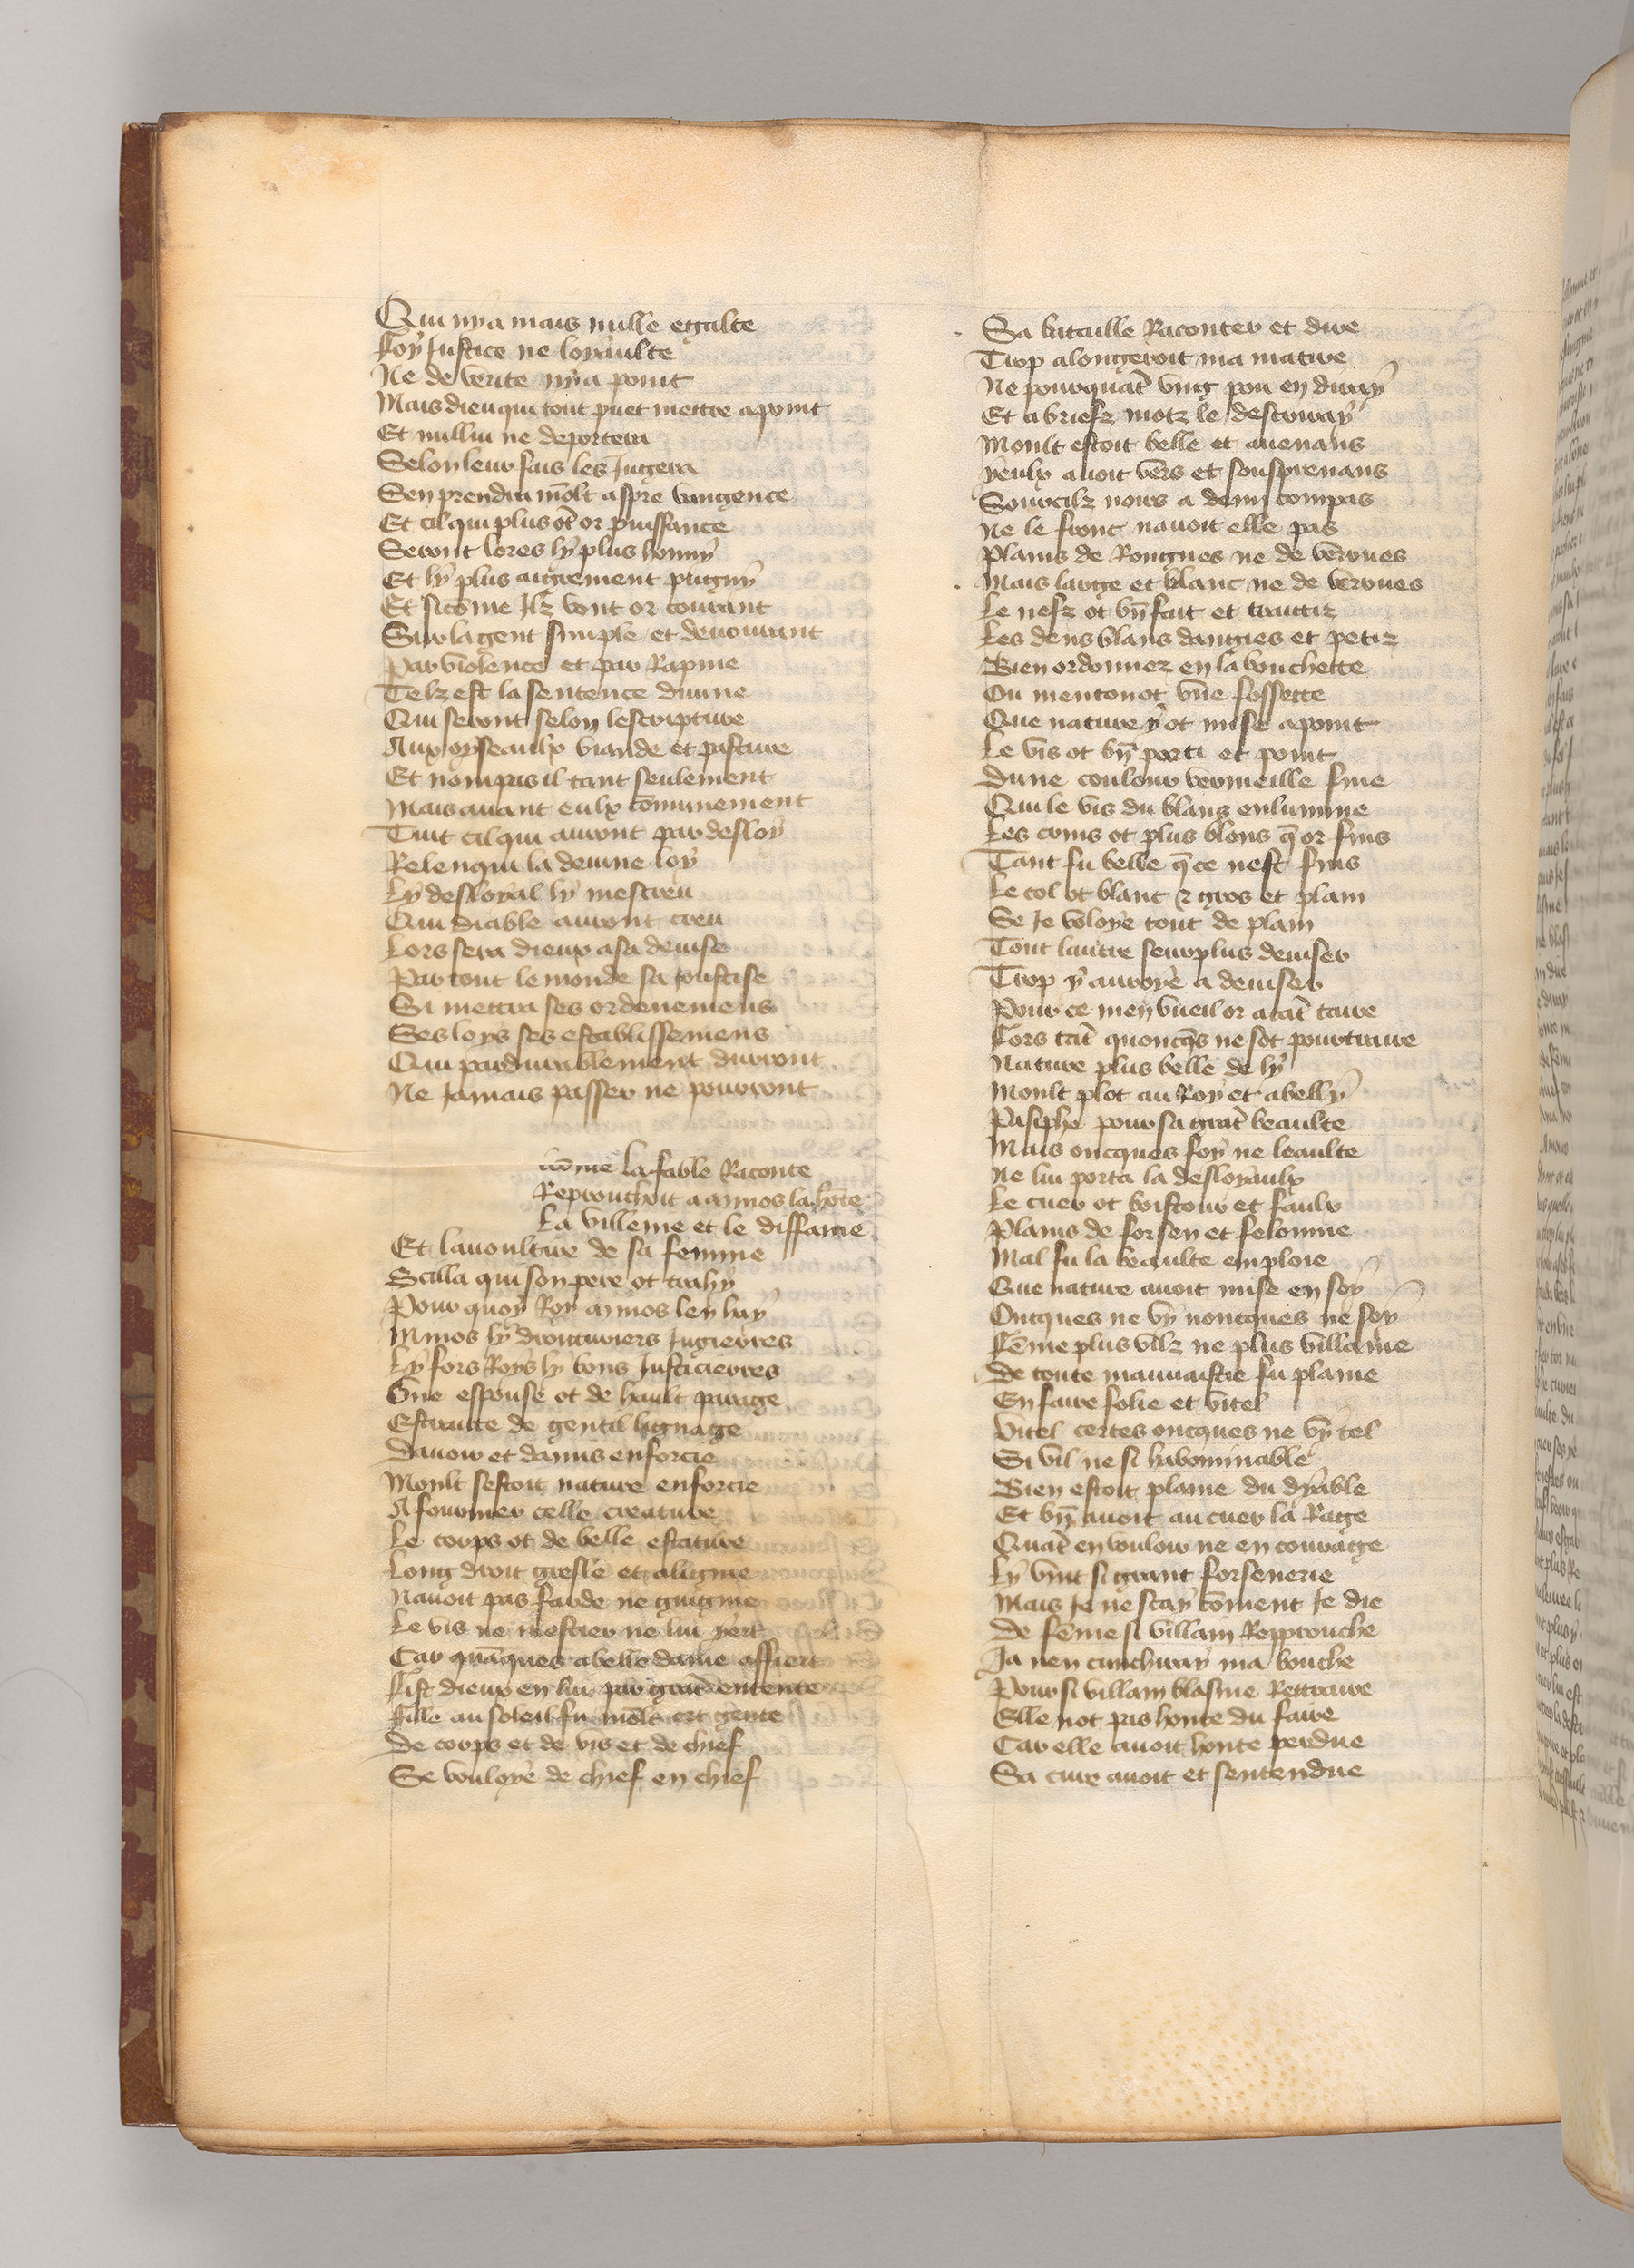 Qui nya mais nulle egalte
Foy Justice ne loyaulte
Ne de verite nya point
Mais dieu qui tout puet mettre apoint
Et nulluy ne deportera
Selon leur fais les Jugera
Sen prendra mōlt aspre vangence
Et cil qui plus ōt or puissance
Seront lores ly plus honny
Et ly plus aigrement pugny
Et sicōme Jlz vont or courant
Sur la gent simple et devourant
Par violence et par Rapine
Telz est la sentence divine
Qui seront selon lescripture
Aux oyseaulx viande et pasture
Et nompas il tant seulement
Mais avant eulx cōmunement
Tuit cil qui auront par desloy
Relenqui la devine loy
Ly desloyal ly mescreu
Qui diable auront creu
Lors sera dieux a sa devise
Par tout le monde sa Joustise
Si mettra ses ordenemens
Ses loys ses establissemens
Qui pardurablement durront
Ne Jamais passer ne pourront
cōme la fable Raconte
Reprouchoit a annos la hōte
La villenie et le diffame
Et lavoultire de sa femme
Scilla qui son pere ot trahy
Pour quoy Roy annos len hay
Minos ly droituriers Jugierres
Ly fors Roys ly bons Justicierres
Une espouse ot de hault parage
Estraitte de gentil lignage
Davoir et damis enforcie
Moult sestoit nature enforcie
A fourmer celle creature
Le corps ot de belle estature
Long droit gresle et aligniе
Navoit pas farde ne guignie
Le vis ne mestier ne lui yert
Car quāques a belle dame affiert
Fist dieux en lui par grāt entente
Fille au soleil fu mōlt ert gente
De corps et de vis et de chief
Se vouloye de chief en chief
Sa bitaille Raconter et dire
Trop alongeroit ma matire
Ne pourquāt ung pou en diray
Et a briefz motz le descriray
Moult estoit belle et avenans
Yeulx avoit vers et sousprenans
Sourcilz noirs a demi compas
Ne le front navoit elle pas
Plains de Rongnes ne de verrues
Mais large et blanc ne de verrues
Le nefz ot bn̄ fait et traittiz
Les dens blans daugies et petiz
Bien ordonnez en la bouchette
Ou menton ot vne fossette
Que nature y ot mise apoint
Le vis ot bn̄ porti et point
Dune coulour vermeille fine
Qui le vis du blans enlumine
Les crins ot plus blons q̄ or fins
Tant fu belle q̄ ce nest fins
Le col ot blanc ⁊ gros et plain
Se Je voloye tout de plain
Tout lautre seurplus deviser
Trop y auroye a deviser
Pour ce men vueil or atāt taire
Fors tāt quoncq̄s ne sot pourtraire
Nature plus belle de ly
Moult plot au Roy et abelly
Pasiphe pour sa grāt beaulte
Mais oncques foy ne leaulte
Ne lui porta la desloyaulx
Le cuer ot boistour et faulx
Plains de forsen et felonnie
Mal fu la beaulte emploie
Que nature avoit mise en soy
Oncques ne vy noncques ne soy
Fēme plus vilz ne plus villaine
De toute mauvaistie fu plaine
En faire folie et vitel
Vitel certes oncques ne vy tel
Si vil ne si habominable
Bien estoit plaine du dyable
Et bn̄ avoit au cuer la Rage
Quāt en vouloir ne en courage
Ly vint si grant forsenerie
Mais Je ne scay cōment Je die
De fēme si villain Repprouche
Ja nen cunchiray ma bouche
Pour si villain blasme Rettraire
Elle not pas honte du faire
Car elle avoit honte perdue
Sa cure avoit et sentendue